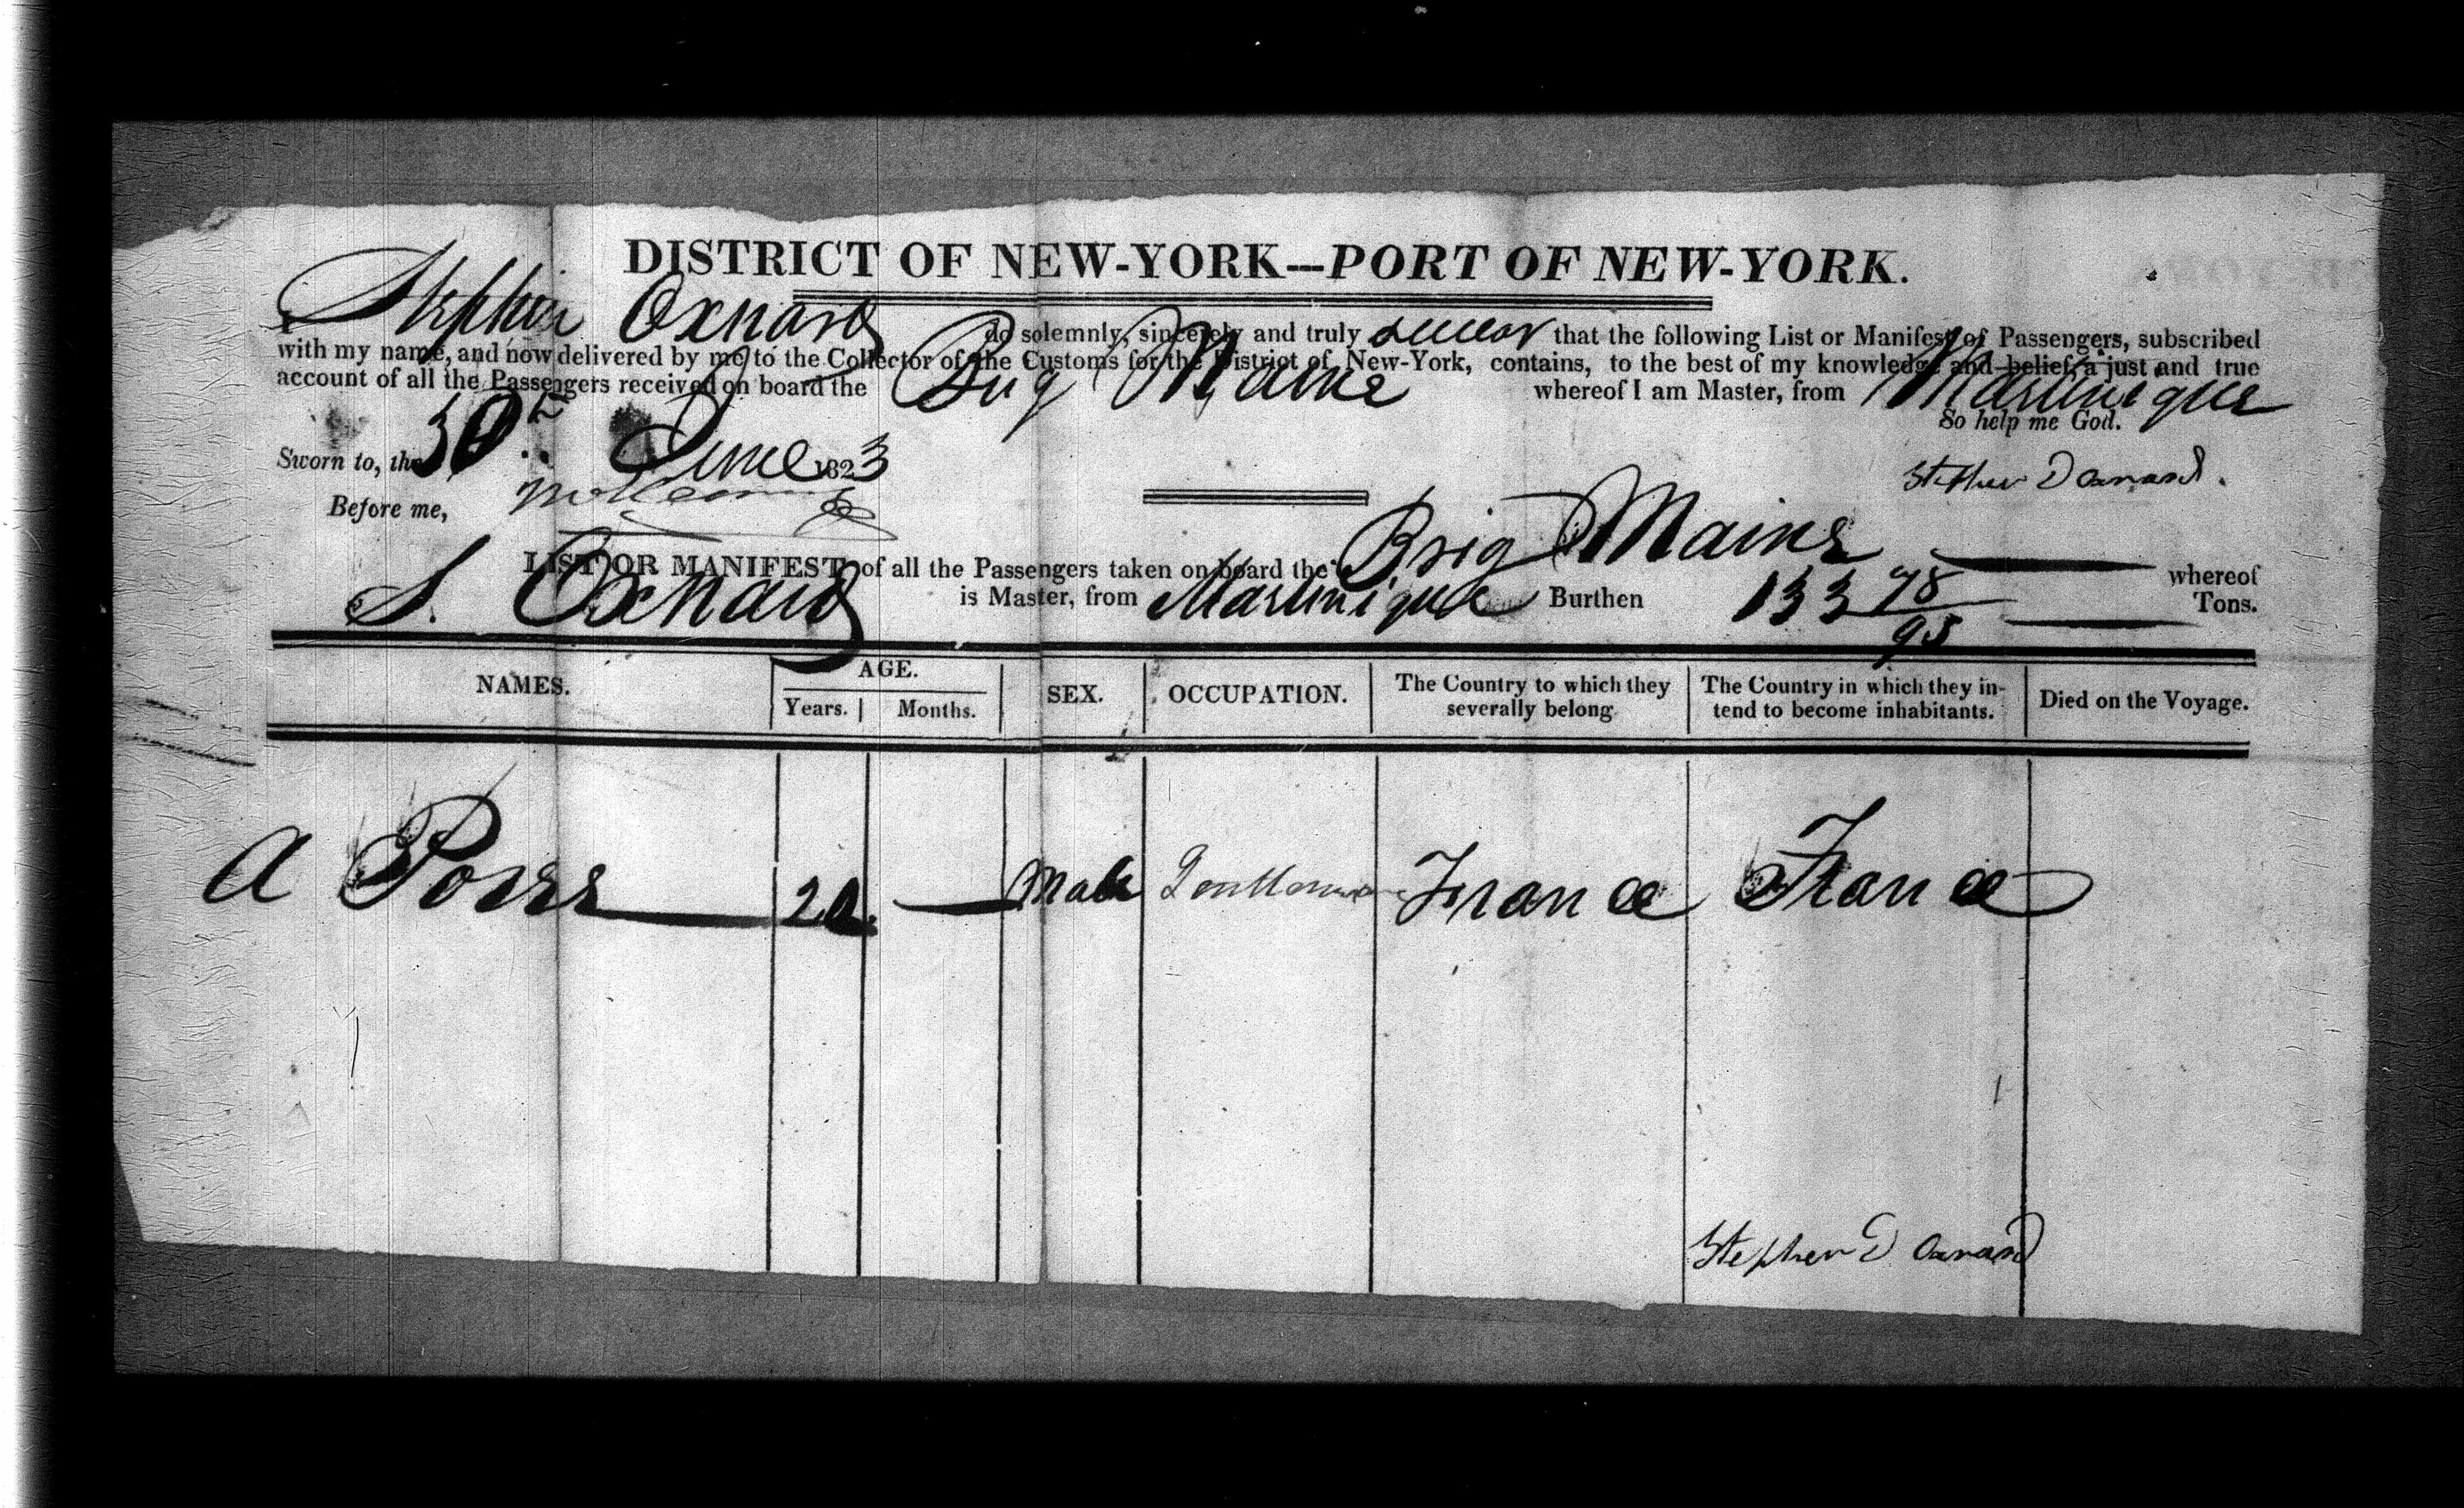 DISTRICT OF NEW-YORK---PORT OF NEW-YORK.
Stephen Oxnard do solemnly, sincerely and truly swear that the following List or Manifest of Passengers, subscribed
with my name, and now delivered by me to the Collector of the Customs for the District of New-York, contains, to the best of my knowledge and belief, a just and true
account of all the Passengers received on board the Brig Maine whereof I am Master, from Martinique
So help me God.
Sworn to, the 30th June 1823
Stephen D Oxnard.
Before me,
LIST OR MANIFEST of all the Passengers taken on board the Brig Maine whereof
S. Oxnard is Master, from Martinique Burthen 133 78/95 Tons.
NAMES. AGE. SEX. OCCUPATION. The Country to which they severally belong The Country in which they in-tend to become inhabitants. Died on the Voyage.
Years. Months.
A 20. Male Gentleman France France
Stephen D Oxnard